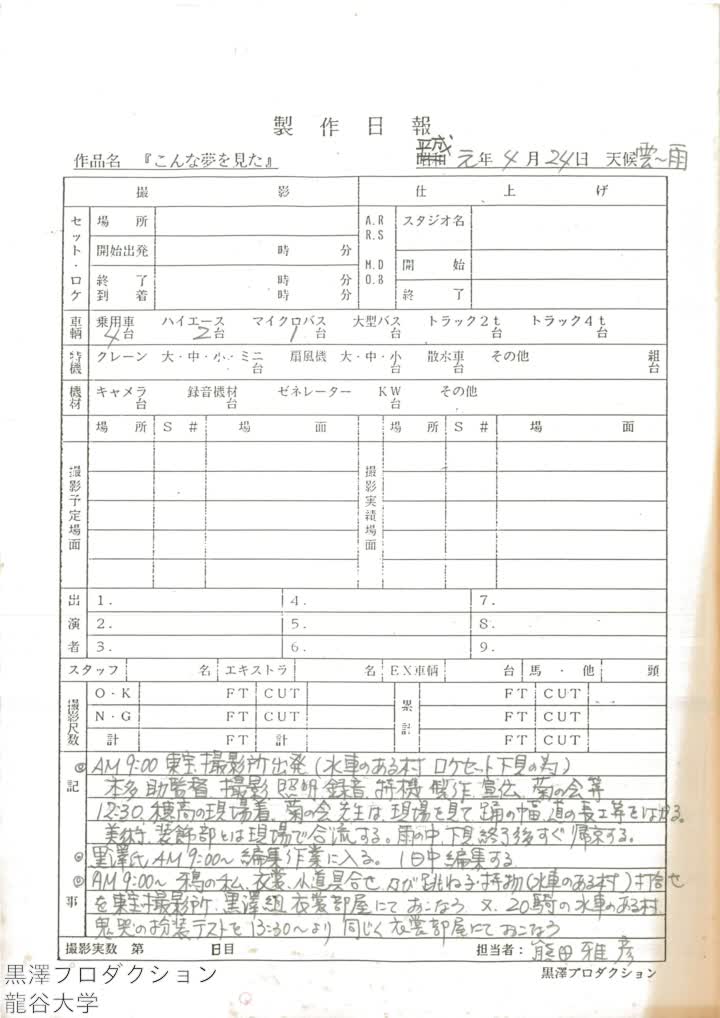 製作日報
作品名 『こんな夢を見た』 平成 元年 4月 24日 天候 雲〜雨
撮影 仕上げ
セット・ロケ 場所 A.R R.S スタジオ名
開始出発 時 分 M.D O.B 開始
終了 時 分 終了
到着 時 分
車輌 乗用車 ハイエース マイクロバス 大型バス トラック2t トラック4t
4台 2台 1台 台 台 台
特機 クレーン 大・中・小・ミニ 扇風機 大・中・小 散水車 その他 組
台 台 台 台
機材 キャメラ 録音機材 ゼネレーター KW その他
台 台 台
場所 S# 場面 場所 S# 場面
撮影予定場面 撮影実績場面
出演者 1. 4. 7.
2. 5. 8.
3. 6. 9.
スタッフ 名 エキストラ 名 EX車輌 台 馬・他 頭
撮影尺数 O・K FT CUT 累計 FT CUT
N・G FT CUT FT CUT
計 FT 計 FT CUT
記事
◎AM9:00 東宝撮影所出発(水車のある村 ロケセット下見の為)
本多助監督、撮影、照明、録音、特機、製作、宣伝、菊の会等
12:30、穂高の現場着、菊の会先生は、現場を見て踊の幅、道の長さ等をはかる。
美術、装飾部とは現場で合流する。雨の中、下見終了後すぐ帰京する。
◎黒澤氏AM9:00〜 編集作業に入る。1日中編集する
◎AM9:00〜 鴉の私、衣裳、小道具合せ 及び跳ね子持物(水車のある村)打合せ
を東宝撮影所、黒澤組衣裳部屋にておこなう 又、20騎の水車のある村、
鬼哭の扮装テストを13:30〜より同じく衣裳部屋にておこなう
撮影実数 第 日目 担当者: 熊田雅彦
黒澤プロダクション
黒澤プロダクション
龍谷大学